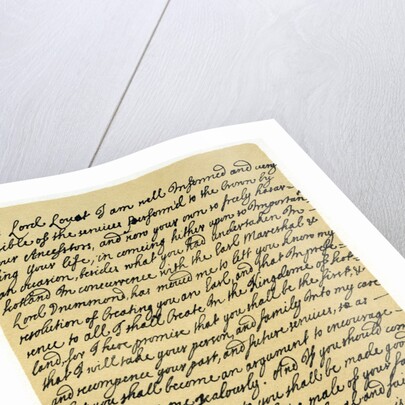 Lord Lovat I am well Informed and very
sible of the services Perform'd to the Crown by
our Ancestors, and now your own so truly hasar-
ing your life, in comeing hither upon so Important
an occasion, besides what you had undertaken In
Scotland In concurrence with the Earl Mareshal &
Lord Drummond, has moved me to lett you know my
resolution of Creating you an Earl and that In prefe-
rence to all I shall Create In the Kingdome of Scot-
land, for I here promise that you shall be the first, &
that I will take your person and family Into my care
and recompence your past, and future services, so as
you shall become an argument to encourage
zealously. And If you should
you shall be made good
male of your